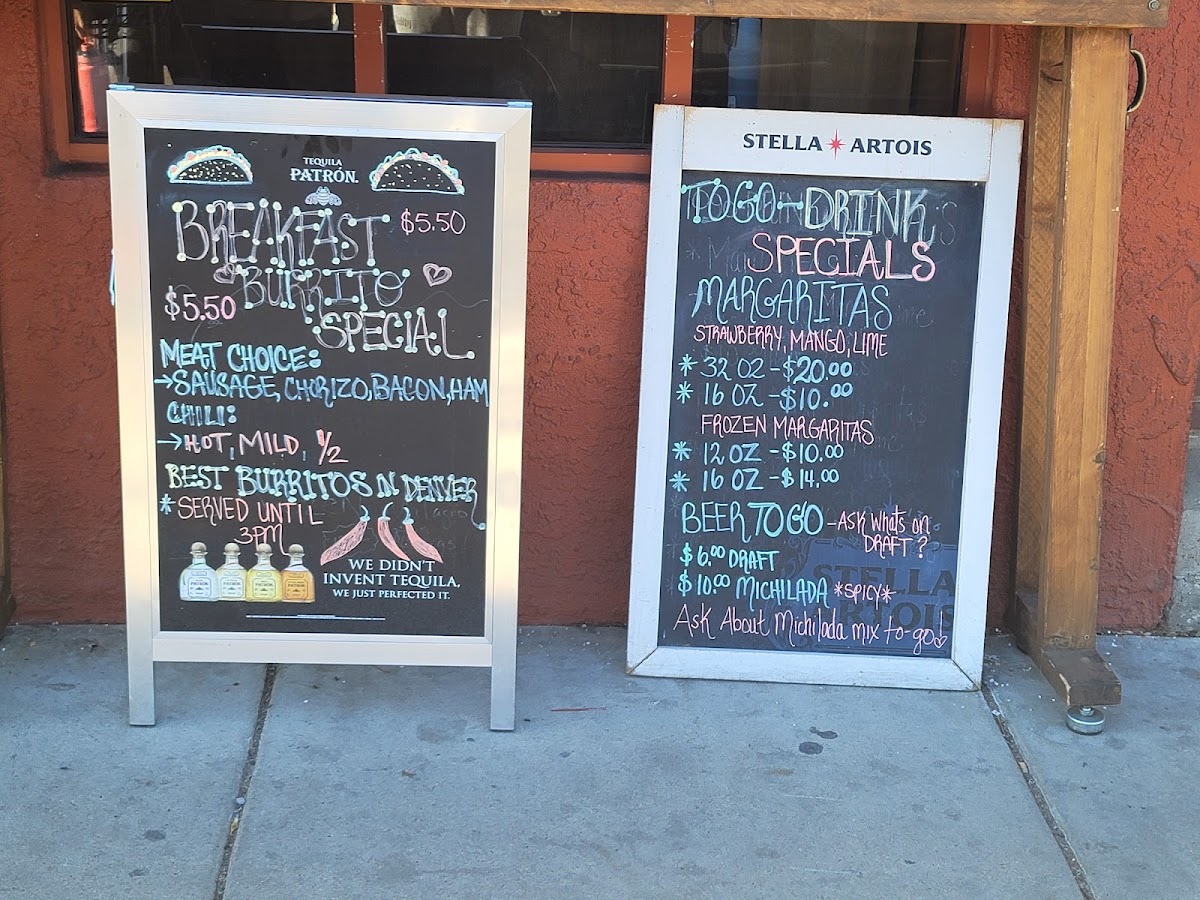 TEQUILA
PATRÓN.
BREAKFAST $5.50
BURRITO
$5.50
SPECIAL
MEAT CHOICE:
→SAUSAGE, CHORIZO, BACON, HAM
CHILI:
→HOT, MILD, 1/2
BEST BURRITOS IN DENVER
*SERVED UNTIL
3PM
WE DIDN'T
INVENT TEQUILA,
WE JUST PERFECTED IT.
STELLA ARTOIS
TOGO-DRINK
SPECIALS
MARGARITAS
STRAWBERRY, MANGO, LIME
* 32 OZ - $20.00
* 16 OZ - $10.00
FROZEN MARGARITAS
* 12 OZ - $10.00
* 16 OZ - $14.00
BEER TO GO - ASK Whats on
DRAFT?
$6.00 DRAFT
$10.00 MICHILADA *SPICY*
STELLA
ARTOIS
Ask About Michilada mix to-go